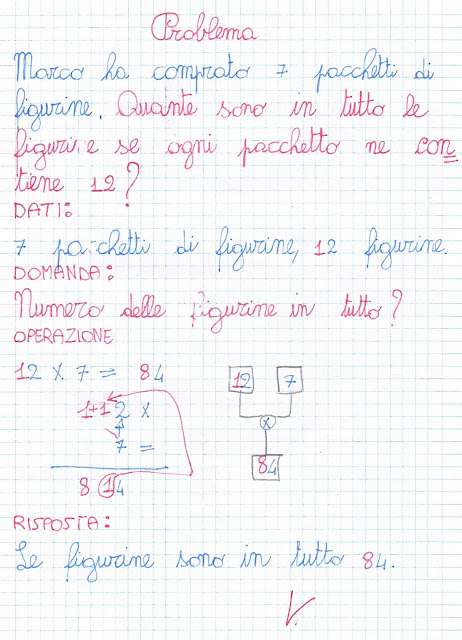 Problema
Marco ha comprato 7 pacchetti di
figurine. Quante sono in tutto le
figurine se ogni pacchetto ne con
tiene 12?
DATI:
7 pacchetti di figurine, 12 figurine.
DOMANDA:
Numero delle figurine in tutto?
OPERAZIONE
12 x 7 = 84
1+12 x
7 =
8 14
12 7
x
84
RISPOSTA:
Le figurine sono in tutto 84.